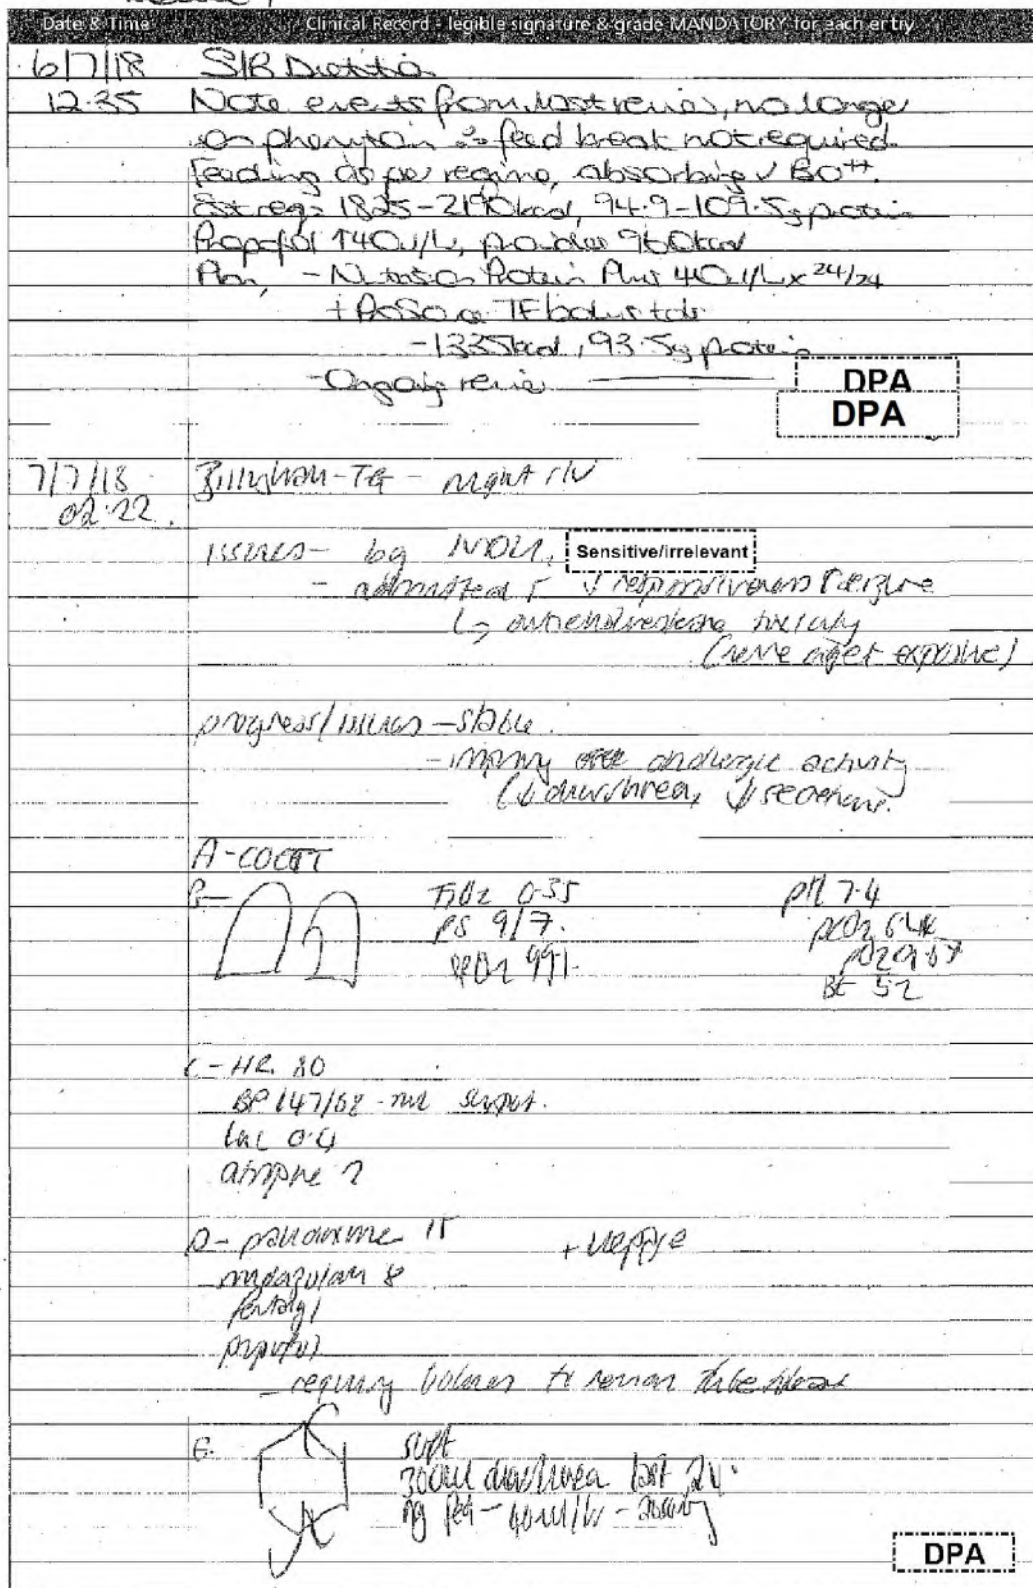 Date & Time Clinical Record - legible signature & grade MANDATORY for each entry
6/7/18 S/B Dietitian
12.35 Note events from last review, no longer
on phenytoin ∴ feed break not required.
Feeding as per regime, absorbing ✓ BO++.
Est req = 1825-2190kcal, 94.9-109.5g protein
Propofol ↑40ml/hr, provides 960kcal
Plan, - Nutrison Protein Plus 40ml/hr x 24/24
+ ProSource TF bolus tds
-1335kcal, 93.5g protein
-Ongoing review
DPA
DPA
7/7/18 - night r/v
02.22
issues - bg
Sensitive/irrelevant
- admitted ↓ responsiveness seizure
↳ anticholinesterase toxicity
(nerve agent exposure)
progress/issues - stable.
- cholinergic activity
(↓ diarrhoea, ↓
A - COETT
FiO2 0.35 pH 7.4
PS 9/7. pCO2
SpO2 99%. pO2
BE 5.2
C - HR 80
BP 147/68 - nil support.
lac 0.4
atropine 2
D - pralidoxime + keppra
midazolam 8
fentanyl
propofol
- requiring boluses to
E. soft
300ml diarrhoea last
ng feed - 40ml/hr -
DPA